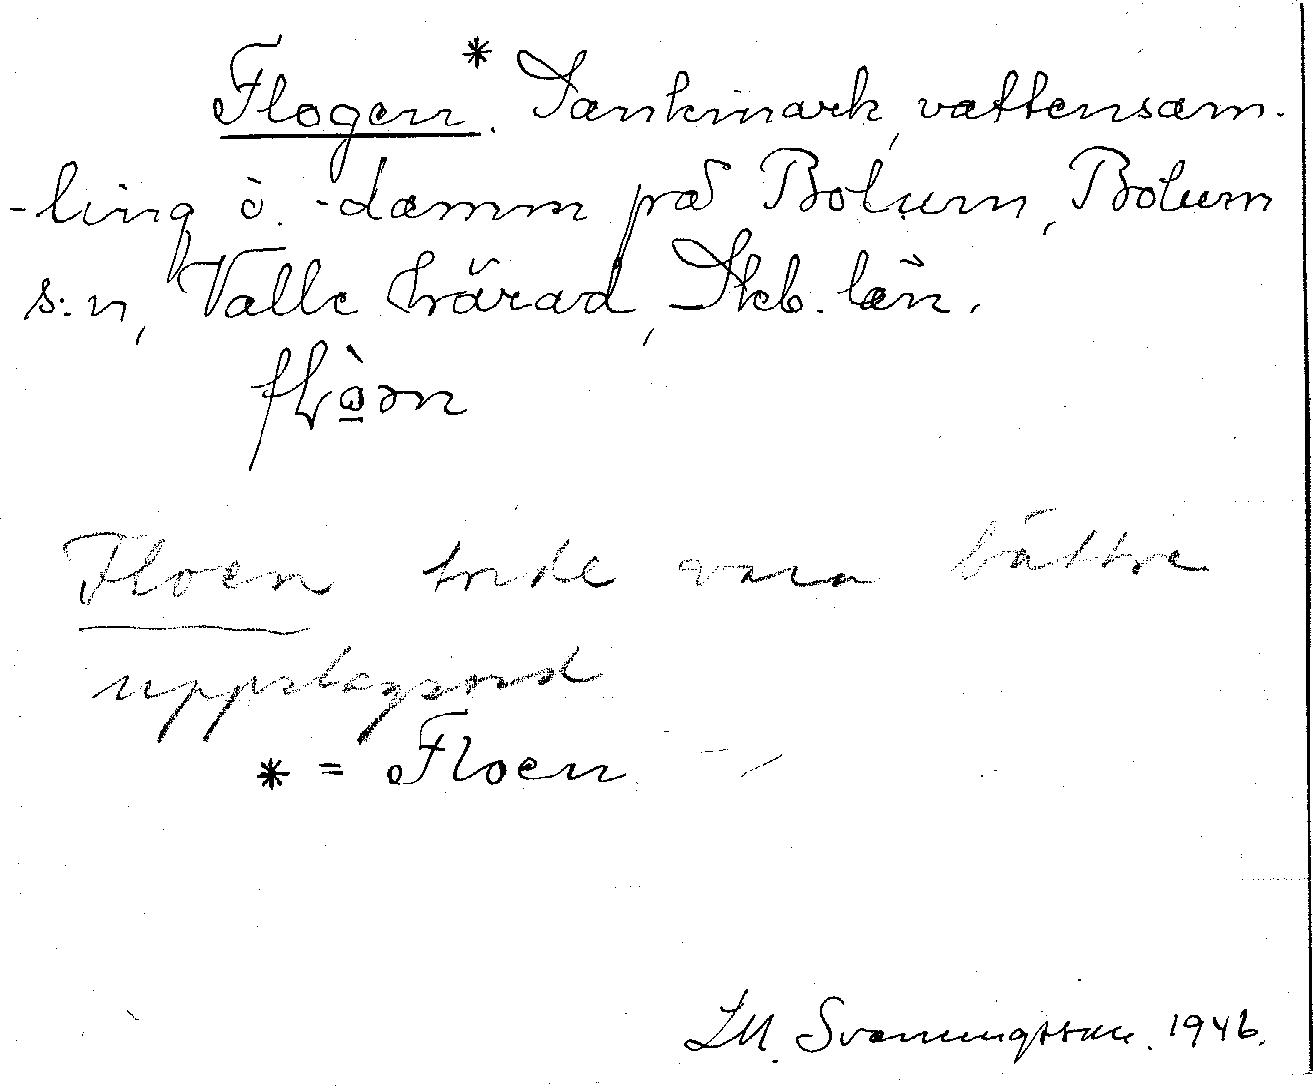 Flogen.* Sankmark, vattensam-
-ling o. -damm på Bolum, Bolum
s:n, Valle härad, Skb. län.
flò̱ən
Floen torde vara bättre
uppslagsord
* = Floen
L.M. Svenungsson. 1946.